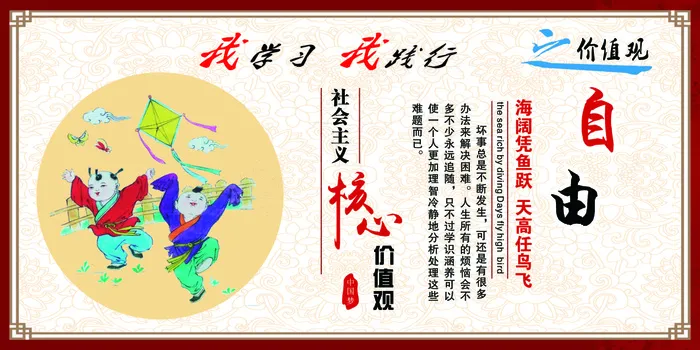 我学习 我践行
之价值观
自由
海阔凭鱼跃 天高任鸟飞
the sea rich by diving Days fly high bird
坏事总是不断发生，可还是有很多
办法来解决困难。人生所有的烦恼会不
多不少永远追随，只不过学识涵养可以
使一个人更加理智冷静地分析处理这些
难题而已。
社会主义
核心
价值观
中国梦